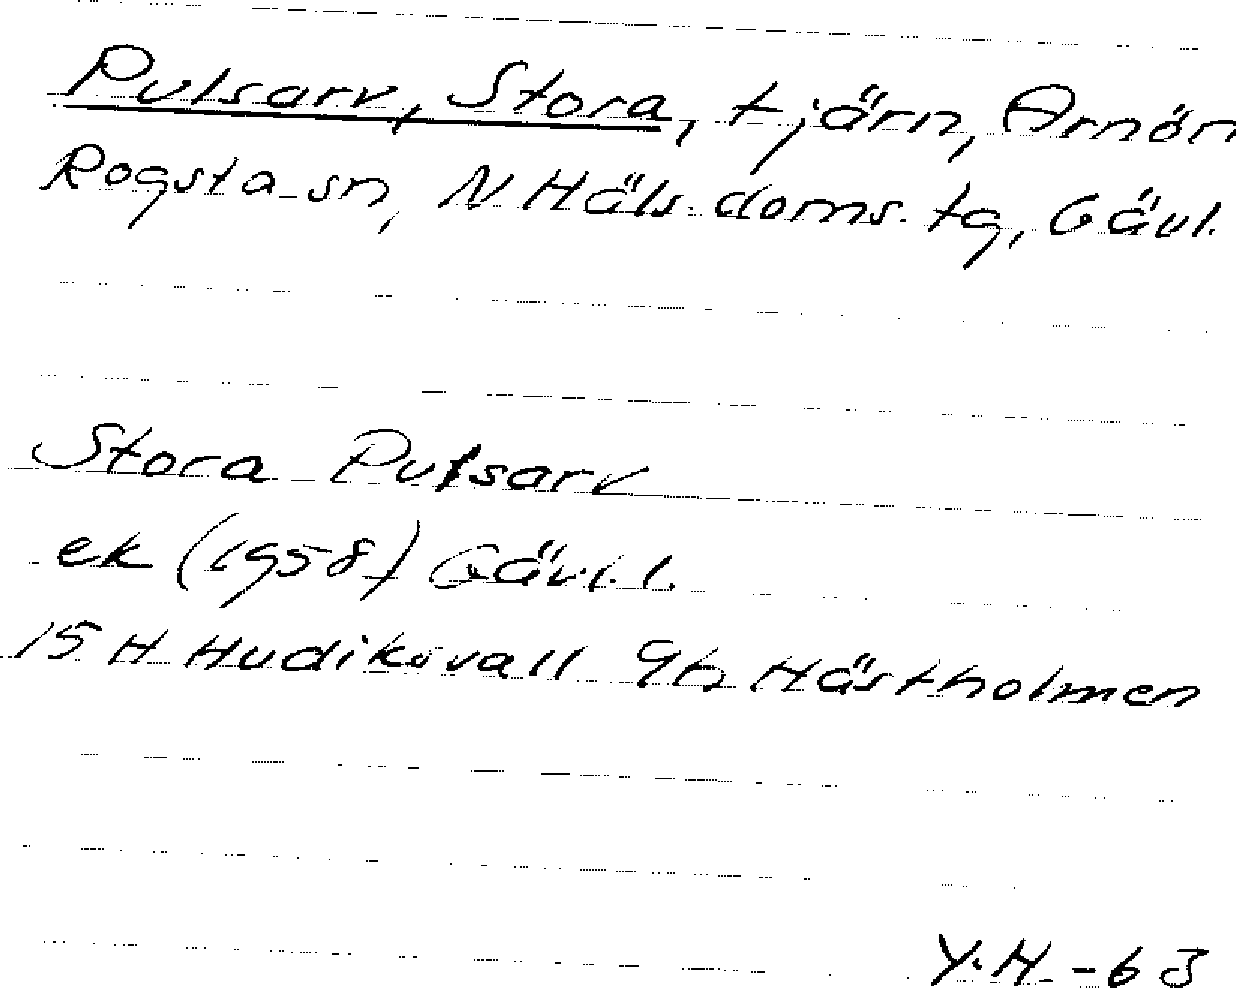 Pulsarv, Stora, tjärn, Arnön
Rogsta sn, N Häls. doms. tg, Gävl.
Stora Pulsarv
ek (1958) Gävl. l.
15 H Hudiksvall 9h Hästholmen
Y.H. -63